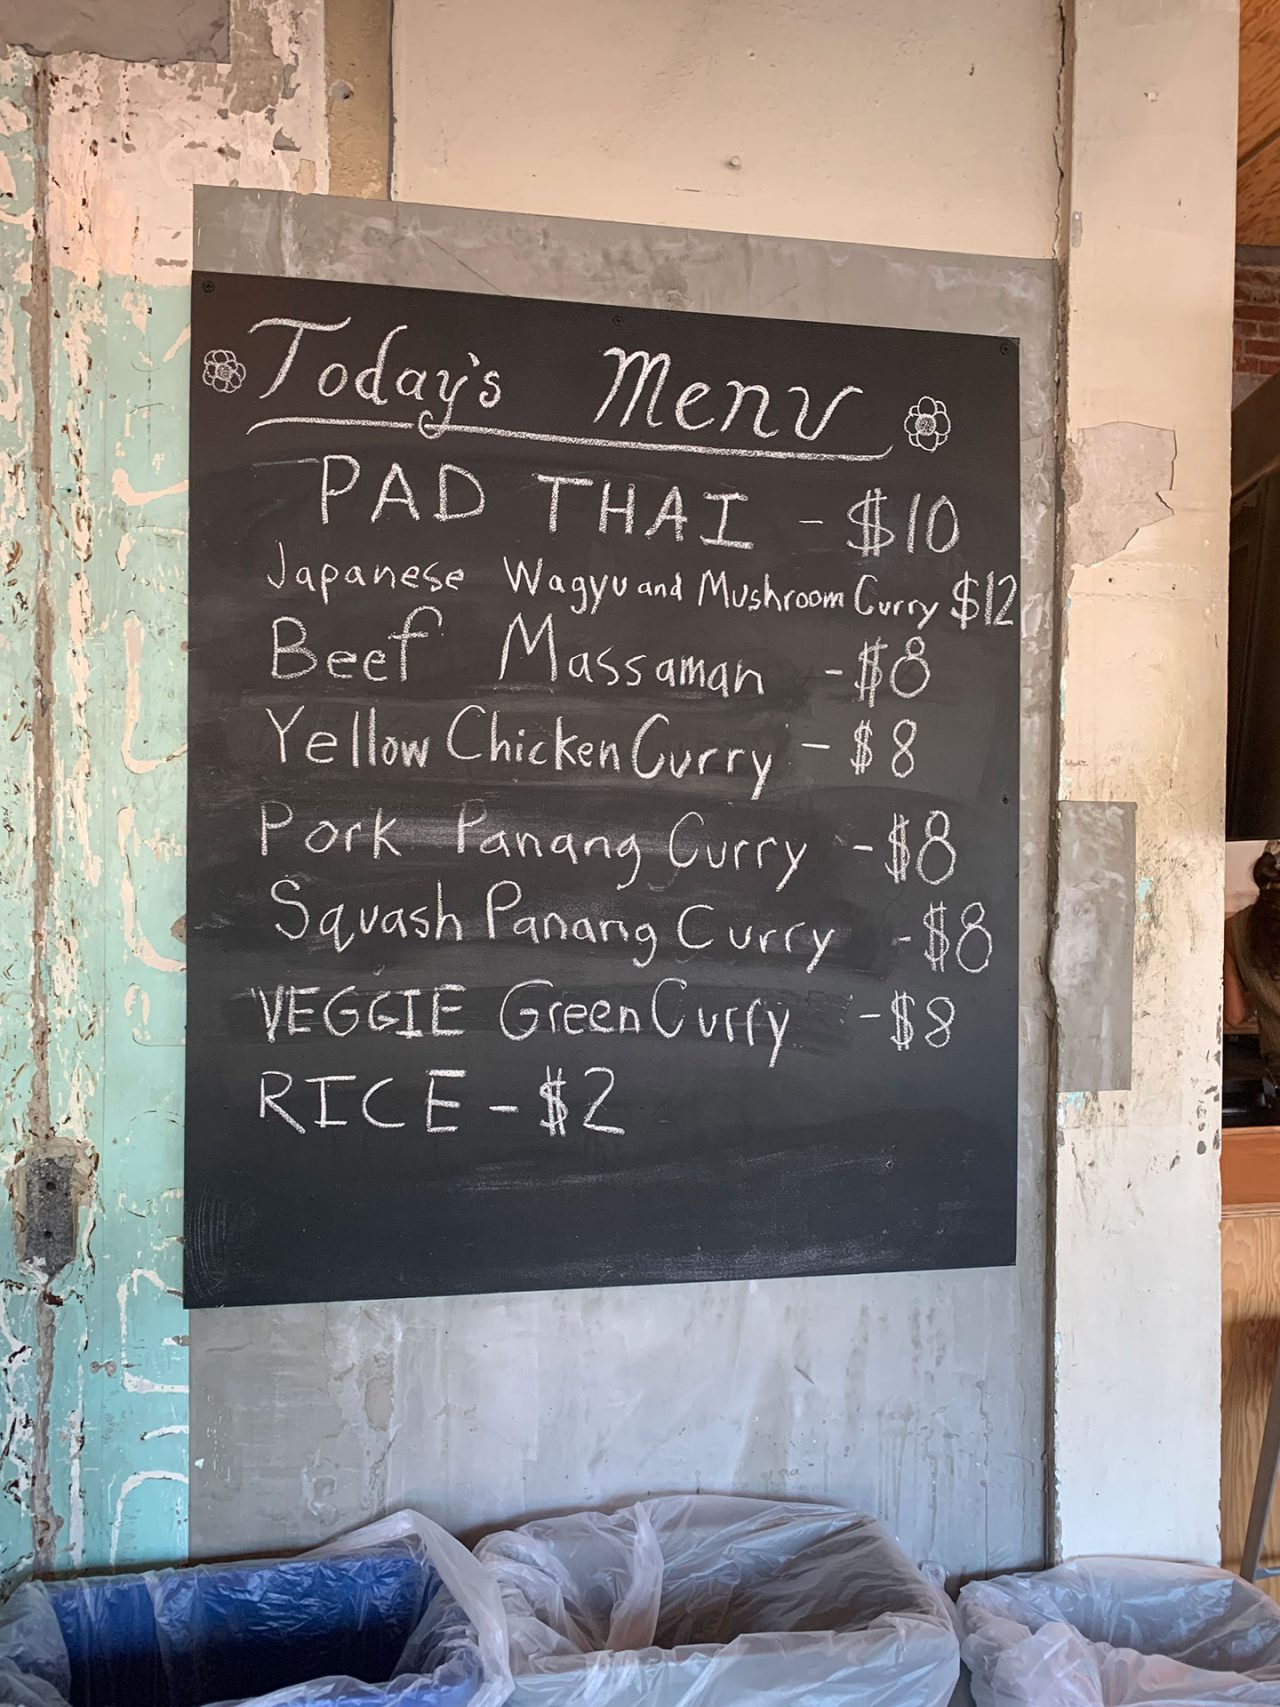 Today's Menu
PAD THAI - $10
Japanese Wagyu and Mushroom Curry $12
Beef Massaman - $8
Yellow Chicken Curry - $8
Pork Panang Curry - $8
Squash Panang Curry - $8
VEGGIE Green Curry - $8
RICE - $2